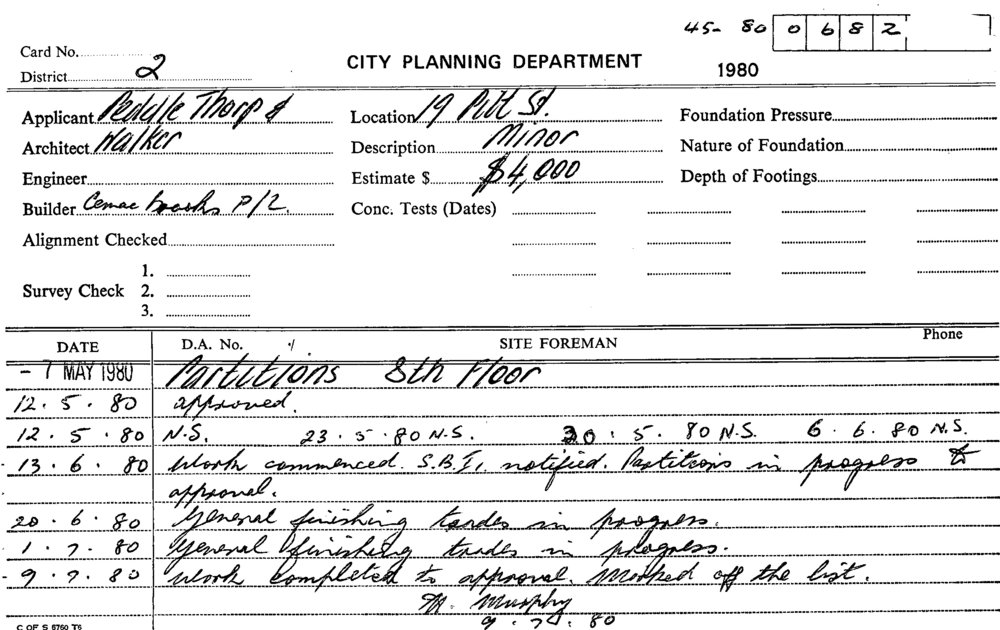 45- 80 0682
Card No.
CITY PLANNING DEPARTMENT
District 2
1980
Applicant Peddle Thorp &
Location 19 Pitt St.
Foundation Pressure
Architect Walker
Description Minor
Nature of Foundation
Engineer
Estimate $ $4,000
Depth of Footings
Builder Cemac P/L.
Conc. Tests (Dates)
Alignment Checked
1.
Survey Check 2.
3.
DATE D.A. No. SITE FOREMAN Phone
- 7 MAY 1980 Partitions 8th Floor
12 . 5 . 80 approved.
12 . 5 . 80 N.S. 23 . 5 . 80 N.S. 30 . 5 . 80 N.S. 6 . 6 . 80 N.S.
13 . 6 . 80 Work commenced. S.B.I. notified. Partitions in progress to
approval.
20 . 6 . 80 General finishing trades in progress.
1 . 7 . 80 General finishing trades in progress.
9 . 7 . 80 Work completed to approval. Marked off the list.
M. Murphy
9 . 7 . 80
C OF S 6760 T6